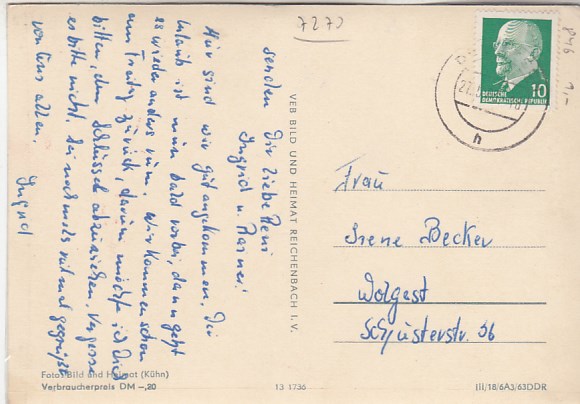 7270
846
1,-
10
DEUTSCHE
DEMOKRATISCHE REPUBLIK
h
senden
Dir liebe Reni
Ingrid u. Rainer!
Hier sind wir gut angekommen. Der
Urlaub ist nun bald vorbei, dann geht
es wieder anders rum. Wir kommen schon
am Freitag zurück, darum möchte ich Dich
bitten, den Schlüssel abzuziehen. Vergesse
es bitte nicht. Sei nochmals gegrüßt
von uns allen.
Ingrid
VEB BILD UND HEIMAT REICHENBACH I. V.
Frau
Irene Becker
Wolgast
Schusterstr. 36
Foto: Bild und Heimat (Kühn)
Verbraucherpreis DM –,20
13 1736
III/18/6A3/63DDR